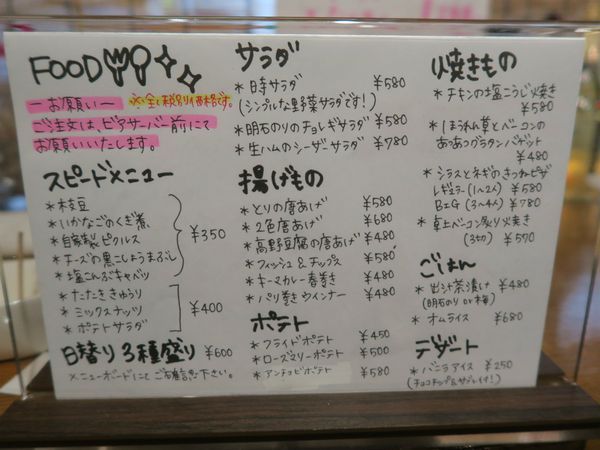 FOOD
〜お願い〜
※全て税別価格です。
ご注文は、ビアサーバー前にて
お願いいたします。
スピードメニュー
*枝豆
*いかなごのくぎ煮
*自家製ピクルス
*チーズの黒こしょうまぶし
*塩こんぶキャベツ
¥350
*たたききゅうり
*ミックスナッツ
*ポテトサラダ
¥400
日替り3種盛り ¥600
メニューボードにてご確認下さい。
サラダ
*日寺サラダ ¥580
(シンプルな野菜サラダです!)
*明石のりのチョレギサラダ ¥580
*生ハムのシーザーサラダ ¥780
揚げもの
*とりの唐あげ ¥580
*2色唐あげ ¥680
*高野豆腐の唐あげ ¥480
*フィッシュ&チップス ¥580
*キーマカレー春巻き ¥480
*パリ巻きウインナー ¥480
ポテト
*フライドポテト ¥450
*ローズマリーポテト ¥500
*アンチョビポテト ¥580
焼きもの
*チキンの塩こうじ焼き
¥580
*ほうれん草とベーコンの
あつあつグラタンバゲット
¥480
*シラスとネギのきつねピザ
レギュラー(1〜2人) ¥580
BIG (3〜4人) ¥780
*卓上ベーコン炙り焼き
(3切) ¥570
ごはん
*出汁茶漬け ¥480
(明石のりor梅)
*オムライス ¥680
デザート
*バニラアイス ¥250
(チョコチップ&サブレ付!)